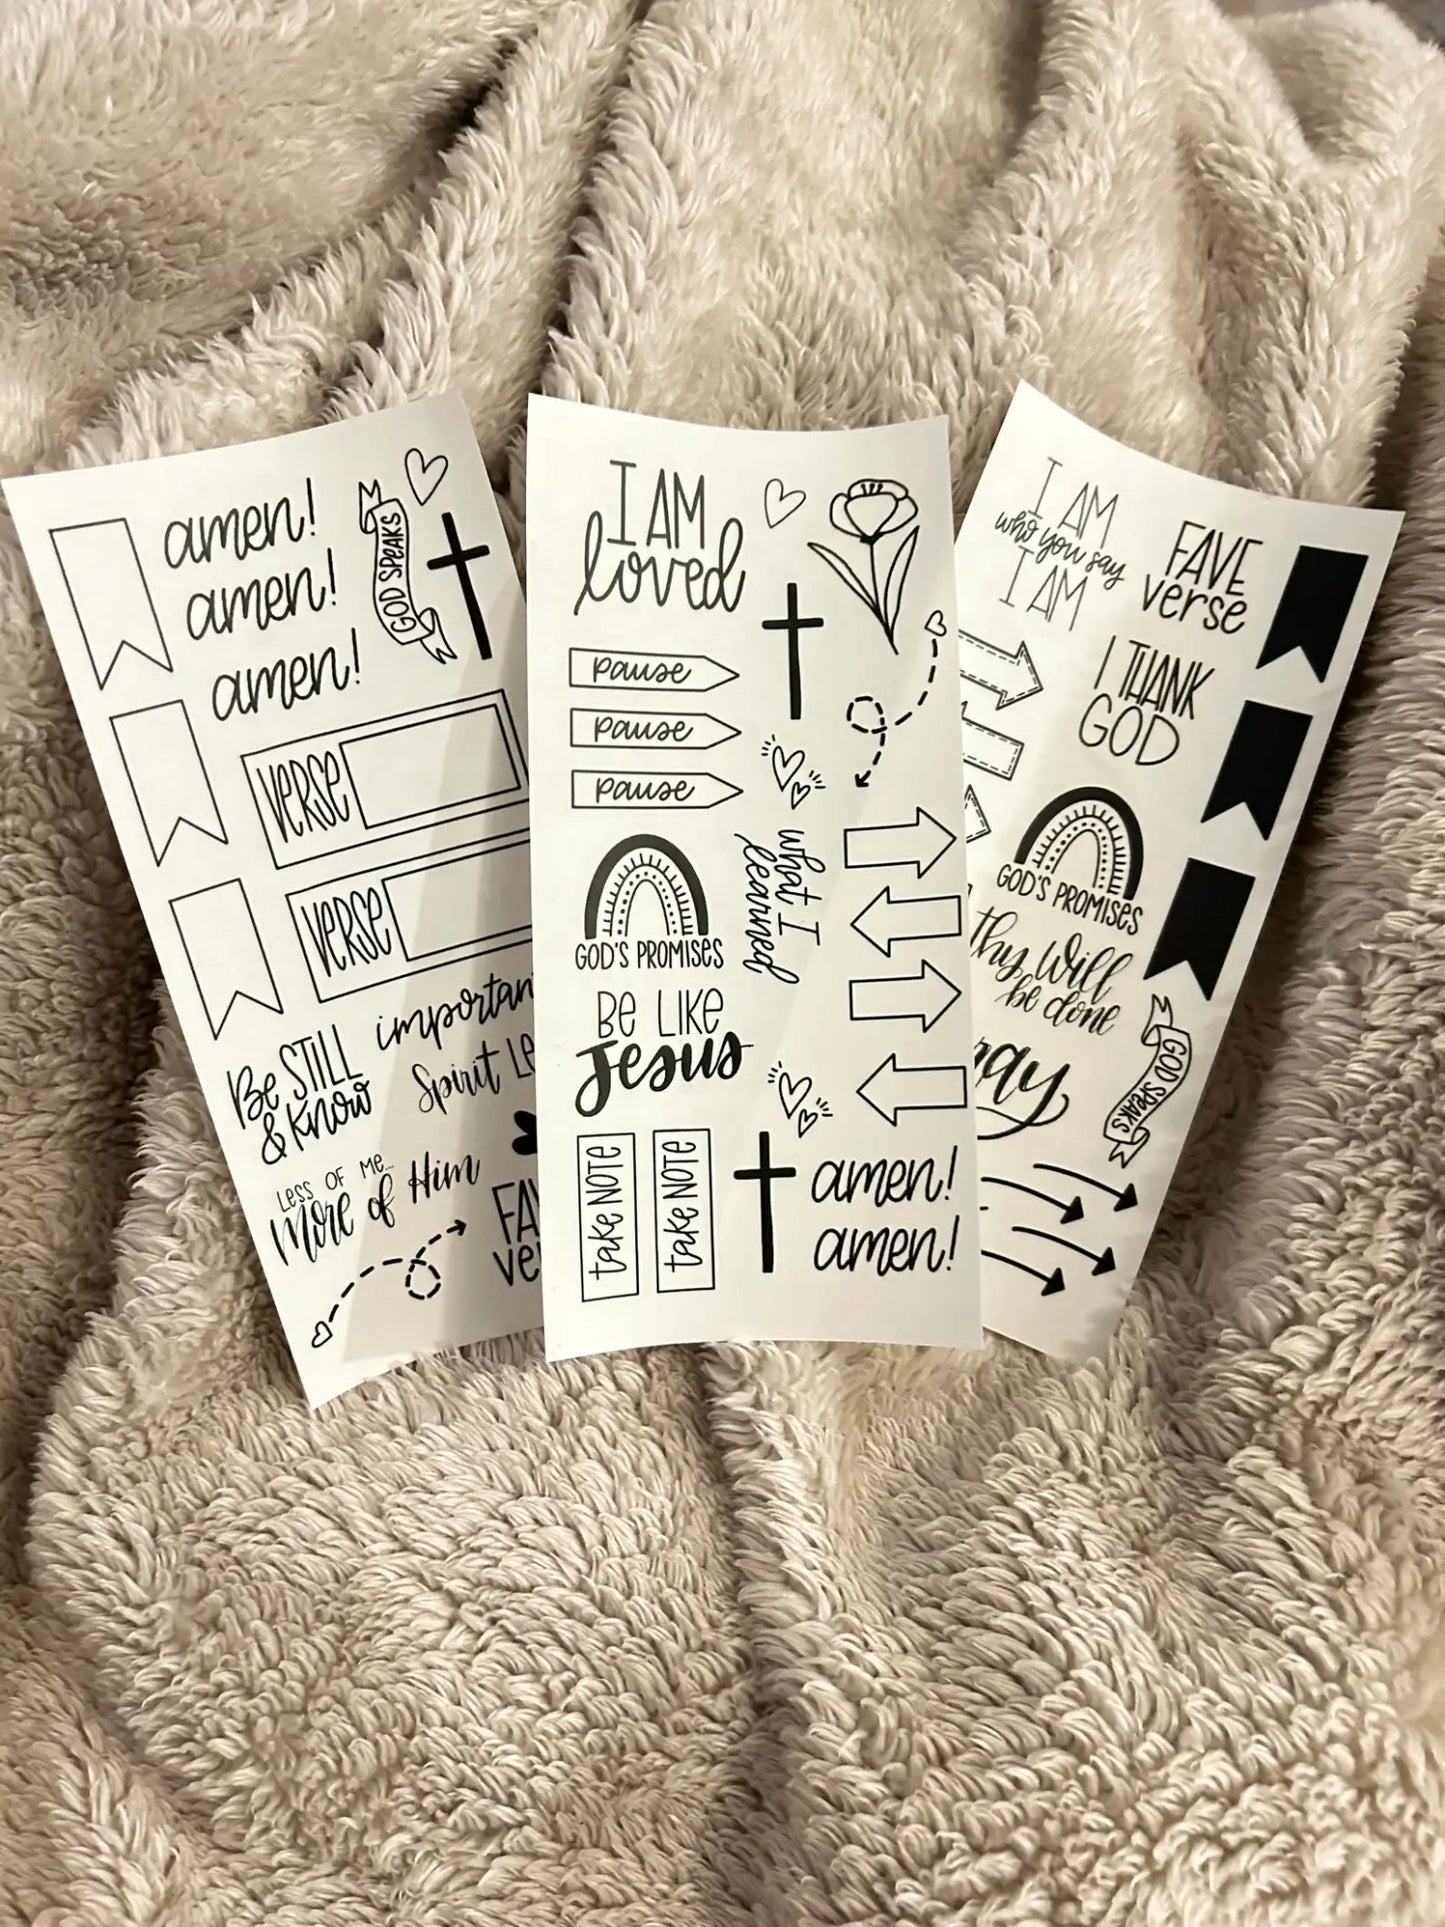 amen!
amen!
amen!
GOD SPEAKS
VERSE
VERSE
Be STILL
& Know
Spirit
LESS OF ME...
More of Him
I AM
loved
pause
pause
pause
what I
learned
GOD'S PROMISES
BE LIKE
Jesus
take NOTE
take NOTE
amen!
amen!
I AM
who you say
I AM
FAVE
verse
I THANK
GOD
GOD'S PROMISES
thy will
be done
GOD SPEAKS